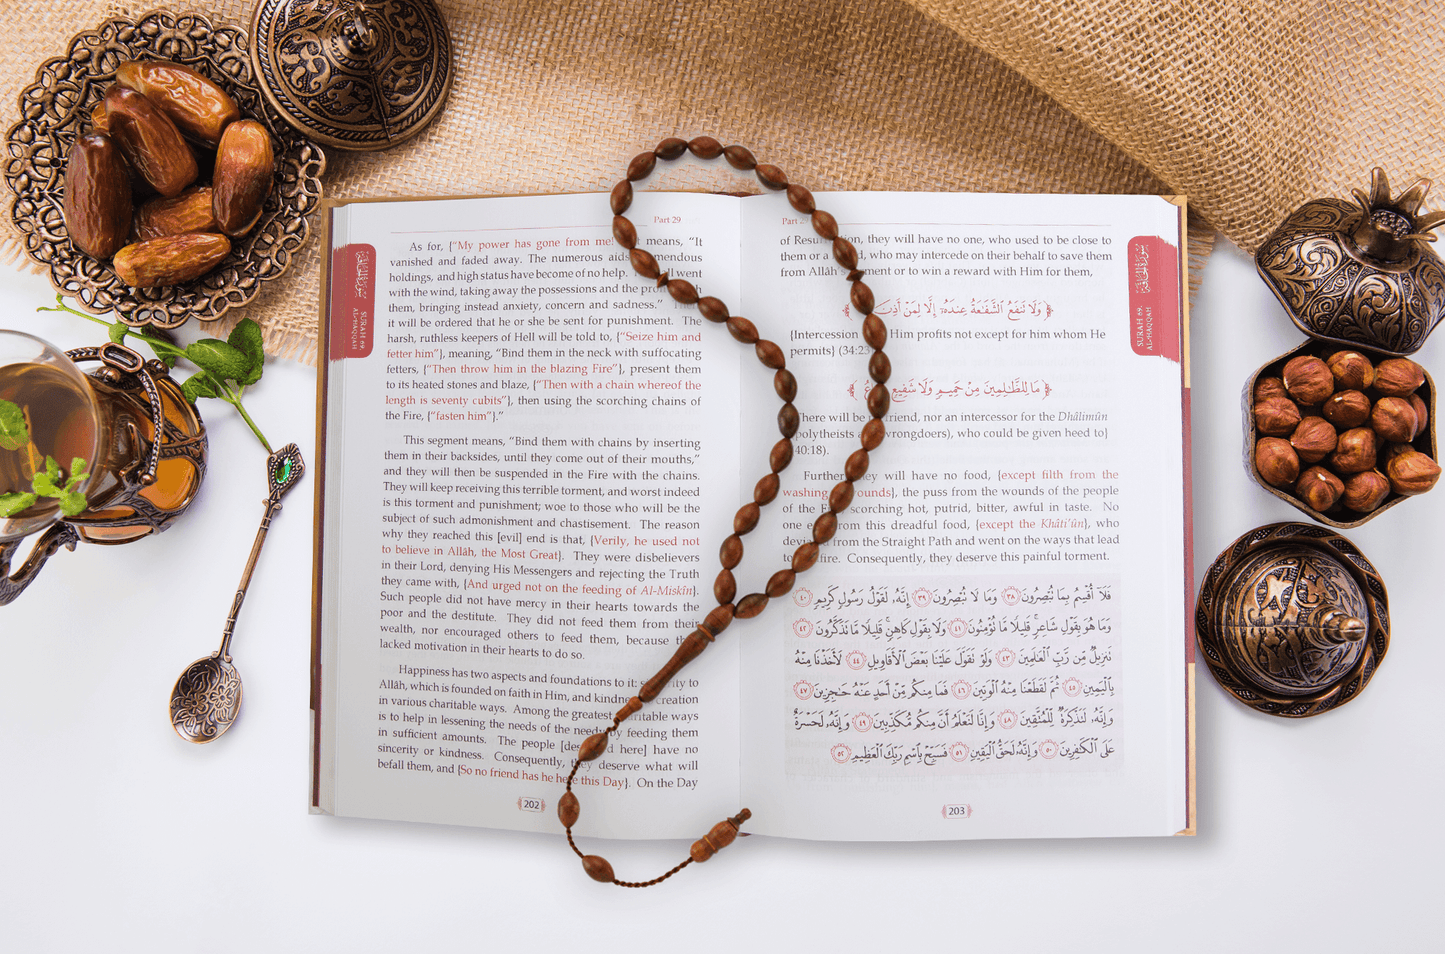 Part 29
As for, {"My power has gone from me! means, "It
vanished and faded away. The numerous aids
holdings, and high status have become of no help. went
with the wind, taking away the possessions and the
them, bringing instead anxiety, concern and sadness."
it will be ordered that he or she be sent for punishment. The
harsh, ruthless keepers of Hell will be told to, {"Seize him and
fetter him"}, meaning, "Bind them in the neck with suffocating
fetters, {"Then throw him in the blazing Fire"}, present them
to its heated stones and blaze, {"Then with a chain whereof the
length is seventy cubits"}, then using the scorching chains of
the Fire, {"fasten him"}."
This segment means, "Bind them with chains by inserting
them in their backsides, until they come out of their mouths,"
and they will then be suspended in the Fire with the chains.
They will keep receiving this terrible torment, and worst indeed
is this torment and punishment; woe to those who will be the
subject of such admonishment and chastisement. The reason
why they reached this [evil] end is that, {Verily, he used not
to believe in Allāh, the Most Great}. They were disbelievers
in their Lord, denying His Messengers and rejecting the Truth
they came with, {And urged not on the feeding of Al-Miskîn}.
Such people did not have mercy in their hearts towards the
poor and the destitute. They did not feed them from their
wealth, nor encouraged others to feed them, because
lacked motivation in their hearts to do so.
Happiness has two aspects and foundations to it: to
Allāh, which is founded on faith in Him, and creation
in various charitable ways. Among the greatest ways
is to help in lessening the needs of the needy by feeding them
in sufficient amounts. The people here] have no
sincerity or kindness. Consequently, they deserve what will
befall them, and {So no friend has he here this Day}. On the Day
202
سورة الحاقة
SURAH 69.
AL-HAQQAH
Part 29
of they will have no one, who used to be close to
them or a who may intercede on their behalf to save them
from Allāh or to win a reward with Him for them,
﴿ وَلَا تَنفَعُ الشَّفَاعَةُ عِندَهُ إِلَّا لِمَنْ أَذِنَ ﴾
{Intercession Him profits not except for him whom He
permits} (34:23
﴿ مَا لِلظَّالِمِينَ مِنْ حَمِيمٍ وَلَا شَفِيعٍ ﴾
There will be friend, nor an intercessor for the Dhâlimûn
polytheists wrongdoers), who could be given heed to}
40:18).
they will have no food, {except filth from the
washing wounds}, the puss from the wounds of the people
of the scorching hot, putrid, bitter, awful in taste. No
one from this dreadful food, {except the Khâti'ûn}, who
from the Straight Path and went on the ways that lead
fire. Consequently, they deserve this painful torment.
فَلَآ أُقْسِمُ بِمَا تُبْصِرُونَ ٣٨ وَمَا لَا تُبْصِرُونَ ٣٩ إِنَّهُۥ لَقَوْلُ رَسُولٍ كَرِيمٍ ٤٠
وَمَا هُوَ بِقَوْلِ شَاعِرٍ قَلِيلًا مَّا تُؤْمِنُونَ ٤١ وَلَا بِقَوْلِ كَاهِنٍ قَلِيلًا مَّا تَذَكَّرُونَ ٤٢
تَنزِيلٌ مِّن رَّبِّ الْعَالَمِينَ ٤٣ وَلَوْ تَقَوَّلَ عَلَيْنَا بَعْضَ الْأَقَاوِيلِ ٤٤ لَأَخَذْنَا مِنْهُ
بِالْيَمِينِ ٤٥ ثُمَّ لَقَطَعْنَا مِنْهُ الْوَتِينَ ٤٦ فَمَا مِنكُم مِّنْ أَحَدٍ عَنْهُ حَاجِزِينَ ٤٧
وَإِنَّهُۥ لَتَذْكِرَةٌ لِّلْمُتَّقِينَ ٤٨ وَإِنَّا لَنَعْلَمُ أَنَّ مِنكُم مُّكَذِّبِينَ ٤٩ وَإِنَّهُۥ لَحَسْرَةٌ
عَلَى الْكَافِرِينَ ٥٠ وَإِنَّهُۥ لَحَقُّ الْيَقِينِ ٥١ فَسَبِّحْ بِاسْمِ رَبِّكَ الْعَظِيمِ ٥٢
203
سورة الحاقة
SURAH 69.
AL-HAQQAH